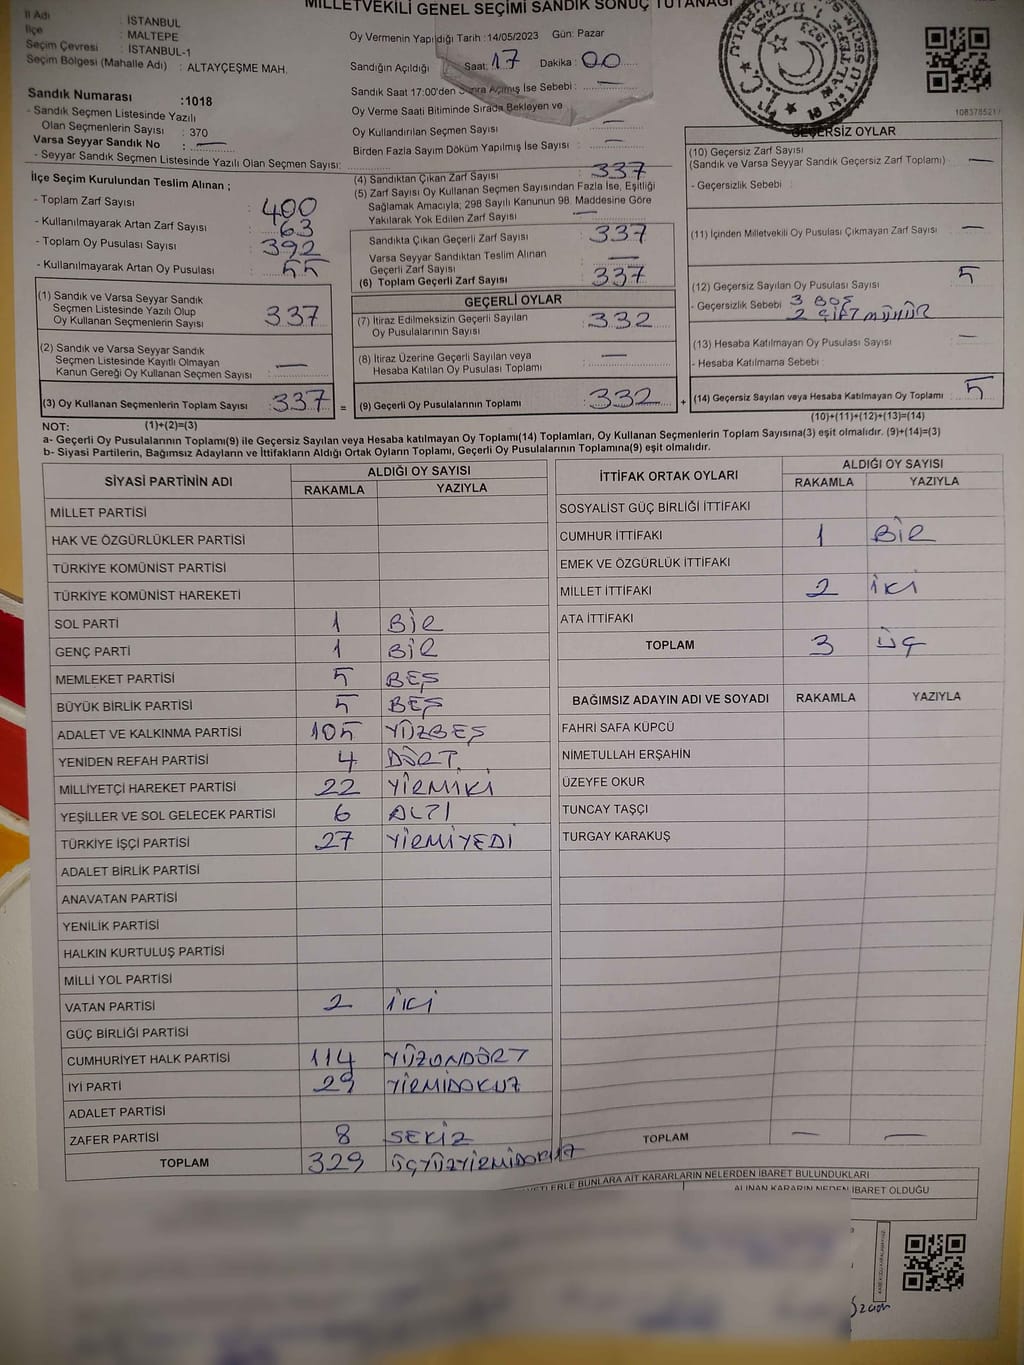 MİLLETVEKİLİ GENEL SEÇİMİ SANDIK SONUÇ TUTANAĞI
İl Adı : İSTANBUL
İlçe : MALTEPE
Seçim Çevresi : İSTANBUL-1
Seçim Bölgesi (Mahalle Adı) : ALTAYÇEŞME MAH.
Sandık Numarası :1018
- Sandık Seçmen Listesinde Yazılı
Olan Seçmenlerin Sayısı : 370
Varsa Seyyar Sandık No : —
- Seyyar Sandık Seçmen Listesinde Yazılı Olan Seçmen Sayısı:
Oy Vermenin Yapıldığı Tarih :14/05/2023 Gün: Pazar
Sandığın Açıldığı Saat: 17 Dakika : 00
Sandık Saat 17:00'den Sonra Açılmış İse Sebebi : —
Oy Verme Saati Bitiminde Sırada Bekleyen ve
Oy Kullandırılan Seçmen Sayısı : —
Birden Fazla Sayım Döküm Yapılmış İse Sayısı : —
1083785217
İlçe Seçim Kurulundan Teslim Alınan ;
- Toplam Zarf Sayısı : 400
- Kullanılmayarak Artan Zarf Sayısı : 63
- Toplam Oy Pusulası Sayısı : 392
- Kullanılmayarak Artan Oy Pusulası : 55
(1) Sandık ve Varsa Seyyar Sandık
Seçmen Listesinde Yazılı Olup
Oy Kullanan Seçmenlerin Sayısı : 337
(2) Sandık ve Varsa Seyyar Sandık
Seçmen Listesinde Kayıtlı Olmayan
Kanun Gereği Oy Kullanan Seçmen Sayısı : —
(3) Oy Kullanan Seçmenlerin Toplam Sayısı : 337 =
(4) Sandıktan Çıkan Zarf Sayısı : 337
(5) Zarf Sayısı Oy Kullanan Seçmen Sayısından Fazla İse, Eşitliği
Sağlamak Amacıyla; 298 Sayılı Kanunun 98. Maddesine Göre
Yakılarak Yok Edilen Zarf Sayısı : —
Sandıkta Çıkan Geçerli Zarf Sayısı : 337
Varsa Seyyar Sandıktan Teslim Alınan
Geçerli Zarf Sayısı : —
(6) Toplam Geçerli Zarf Sayısı : 337
GEÇERLİ OYLAR
(7) İtiraz Edilmeksizin Geçerli Sayılan
Oy Pusulalarının Sayısı : 332
(8) İtiraz Üzerine Geçerli Sayılan veya
Hesaba Katılan Oy Pusulası Toplamı : —
(9) Geçerli Oy Pusulalarının Toplamı : 332 +
GEÇERSİZ OYLAR
(10) Geçersiz Zarf Sayısı
(Sandık ve Varsa Seyyar Sandık Geçersiz Zarf Toplamı) : —
- Geçersizlik Sebebi :
(11) İçinden Milletvekili Oy Pusulası Çıkmayan Zarf Sayısı : —
(12) Geçersiz Sayılan Oy Pusulası Sayısı : 5
- Geçersizlik Sebebi : 3 BOŞ
2 ÇİFT MÜHÜR
(13) Hesaba Katılmayan Oy Pusulası Sayısı : —
- Hesaba Katılmama Sebebi :
(14) Geçersiz Sayılan veya Hesaba Katılmayan Oy Toplamı : 5
NOT: (1)+(2)=(3) (10)+(11)+(12)+(13)=(14)
a- Geçerli Oy Pusulalarının Toplamı(9) ile Geçersiz Sayılan veya Hesaba katılmayan Oy Toplamı(14) Toplamları, Oy Kullanan Seçmenlerin Toplam Sayısına(3) eşit olmalıdır. (9)+(14)=(3)
b- Siyasi Partilerin, Bağımsız Adayların ve İttifakların Aldığı Ortak Oyların Toplamı, Geçerli Oy Pusulalarının Toplamına(9) eşit olmalıdır.
SİYASİ PARTİNİN ADI ALDIĞI OY SAYISI
RAKAMLA YAZIYLA
MİLLET PARTİSİ
HAK VE ÖZGÜRLÜKLER PARTİSİ
TÜRKİYE KOMÜNİST PARTİSİ
TÜRKİYE KOMÜNİST HAREKETİ
SOL PARTİ 1 BİR
GENÇ PARTİ 1 BİR
MEMLEKET PARTİSİ 5 BEŞ
BÜYÜK BİRLİK PARTİSİ 5 BEŞ
ADALET VE KALKINMA PARTİSİ 105 YÜZBEŞ
YENİDEN REFAH PARTİSİ 4 DÖRT
MİLLİYETÇİ HAREKET PARTİSİ 22 YİRMİKİ
YEŞİLLER VE SOL GELECEK PARTİSİ 6 ALTI
TÜRKİYE İŞÇİ PARTİSİ 27 YİRMİYEDİ
ADALET BİRLİK PARTİSİ
ANAVATAN PARTİSİ
YENİLİK PARTİSİ
HALKIN KURTULUŞ PARTİSİ
MİLLİ YOL PARTİSİ
VATAN PARTİSİ 2 İKİ
GÜÇ BİRLİĞİ PARTİSİ
CUMHURİYET HALK PARTİSİ 114 YÜZONDÖRT
İYİ PARTİ 29 YİRMİDOKUZ
ADALET PARTİSİ
ZAFER PARTİSİ 8 SEKİZ
TOPLAM 329 ÜÇYÜZYİRMİDOKUZ
İTTİFAK ORTAK OYLARI ALDIĞI OY SAYISI
RAKAMLA YAZIYLA
SOSYALİST GÜÇ BİRLİĞİ İTTİFAKI
CUMHUR İTTİFAKI 1 BİR
EMEK VE ÖZGÜRLÜK İTTİFAKI
MİLLET İTTİFAKI 2 İKİ
ATA İTTİFAKI
TOPLAM 3 ÜÇ
BAĞIMSIZ ADAYIN ADI VE SOYADI RAKAMLA YAZIYLA
FAHRİ SAFA KÜPCÜ
NİMETULLAH ERŞAHİN
ÜZEYFE OKUR
TUNCAY TAŞÇI
TURGAY KARAKUŞ
TOPLAM — —
BUNLARA AİT KARARLARIN NELERDEN İBARET BULUNDUKLARI
ALINAN KARARIN NEDEN İBARET OLDUĞU